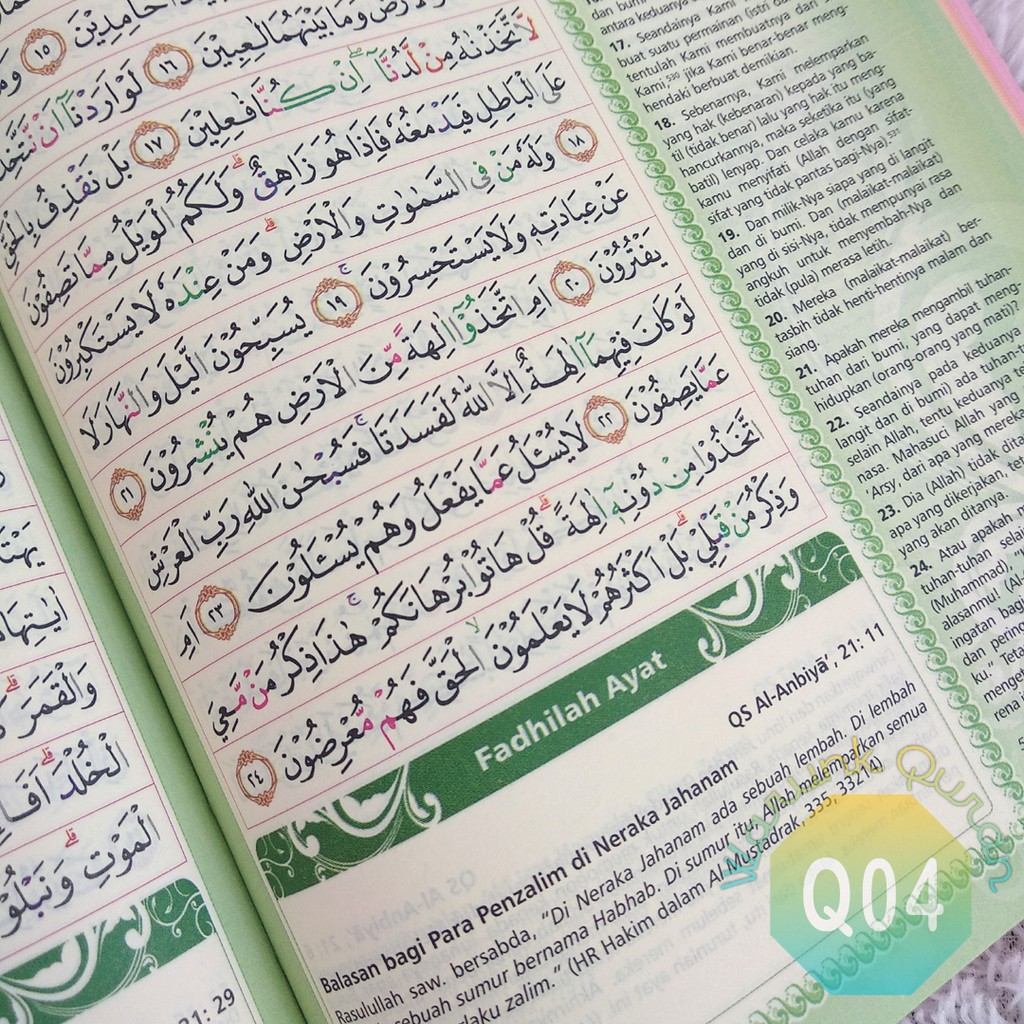 حَامِدِيْنَ ١٥
الْاَرْضَ وَمَا بَيْنَهُمَا لٰعِبِيْنَ ١٦ لَوْ اَرَدْنَآ اَنْ نَّتَّخِذَ
لَّاتَّخَذْنٰهُ مِنْ لَّدُنَّآ ۖاِنْ كُنَّا فٰعِلِيْنَ ١٧ بَلْ نَقْذِفُ بِالْحَقِّ
عَلَى الْبَاطِلِ فَيَدْمَغُهٗ فَاِذَا هُوَ زَاهِقٌۗ وَلَكُمُ الْوَيْلُ مِمَّا تَصِفُوْنَ
١٨ وَلَهٗ مَنْ فِى السَّمٰوٰتِ وَالْاَرْضِۗ وَمَنْ عِنْدَهٗ لَا يَسْتَكْبِرُوْنَ
عَنْ عِبَادَتِهٖ وَلَا يَسْتَحْسِرُوْنَ ۚ ١٩ يُسَبِّحُوْنَ الَّيْلَ وَالنَّهَارَ لَا
يَفْتُرُوْنَ ٢٠ اَمِ اتَّخَذُوْٓا اٰلِهَةً مِّنَ الْاَرْضِ هُمْ يُنْشِرُوْنَ ٢١
لَوْ كَانَ فِيْهِمَآ اٰلِهَةٌ اِلَّا اللّٰهُ لَفَسَدَتَاۚ فَسُبْحٰنَ اللّٰهِ رَبِّ الْعَرْشِ
عَمَّا يَصِفُوْنَ ٢٢ لَا يُسْـَٔلُ عَمَّا يَفْعَلُ وَهُمْ يُسْـَٔلُوْنَ ٢٣ اَمِ
اتَّخَذُوْا مِنْ دُوْنِهٖٓ اٰلِهَةً ۗقُلْ هَاتُوْا بُرْهَانَكُمْۚ هٰذَا ذِكْرُ مَنْ مَّعِيَ
وَذِكْرُ مَنْ قَبْلِيْۗ بَلْ اَكْثَرُهُمْ لَا يَعْلَمُوْنَۙ الْحَقَّ فَهُمْ مُّعْرِضُوْنَ ٢٤
Fadhilah Ayat
QS Al-Anbiyā', 21: 11
Balasan bagi Para Penzalim di Neraka Jahanam
Rasulullah saw. bersabda, "Di Neraka Jahanam ada sebuah lembah. Di lembah
sebuah sumur bernama Habhab. Di sumur itu, Allah melemparkan semua
zalim." (HR Hakim dalam Al-Mustadrak, 335, 33214)
dan bumi
antara keduanya
17. Seandainya Kami
buat suatu permainan (istri da
tentulah Kami membuatnya dari s
Kami,⁵³⁰ jika Kami benar-benar meng-
hendaki berbuat demikian.
18. Sebenarnya, Kami melemparkan
yang hak (kebenaran) kepada yang ba-
til (tidak benar) lalu yang hak itu meng-
hancurkannya, maka seketika itu (yang
batil) lenyap. Dan celaka kamu karena
kamu menyifati (Allah dengan sifat-
sifat yang tidak pantas bagi-Nya).⁵³¹
19. Dan milik-Nya siapa yang di langit
dan di bumi. Dan (malaikat-malaikat)
yang di sisi-Nya, tidak mempunyai rasa
angkuh untuk menyembah-Nya dan
tidak (pula) merasa letih.
20. Mereka (malaikat-malaikat) ber-
tasbih tidak henti-hentinya malam dan
siang.
21. Apakah mereka mengambil tuhan-
tuhan dari bumi, yang dapat meng-
hidupkan (orang-orang yang mati)?
22. Seandainya pada keduanya
langit dan di bumi) ada tuhan-t
selain Allah, tentu keduanya te
nasa. Mahasuci Allah yang
'Arsy, dari apa yang mereka
23. Dia (Allah) tidak dita
apa yang dikerjakan, te
yang akan ditanya.
24. Atau apakah m
tuhan-tuhan selai
(Muhammad), "
alasanmu! (Al-
ingatan bagi
dan pering
ku." Teta
menget
rena
وَالْقَمَرَ
الْخُلْدَۗ اَفَا۟
الْمَوْتِۗ وَنَبْلُوْ
21: 29
Q04